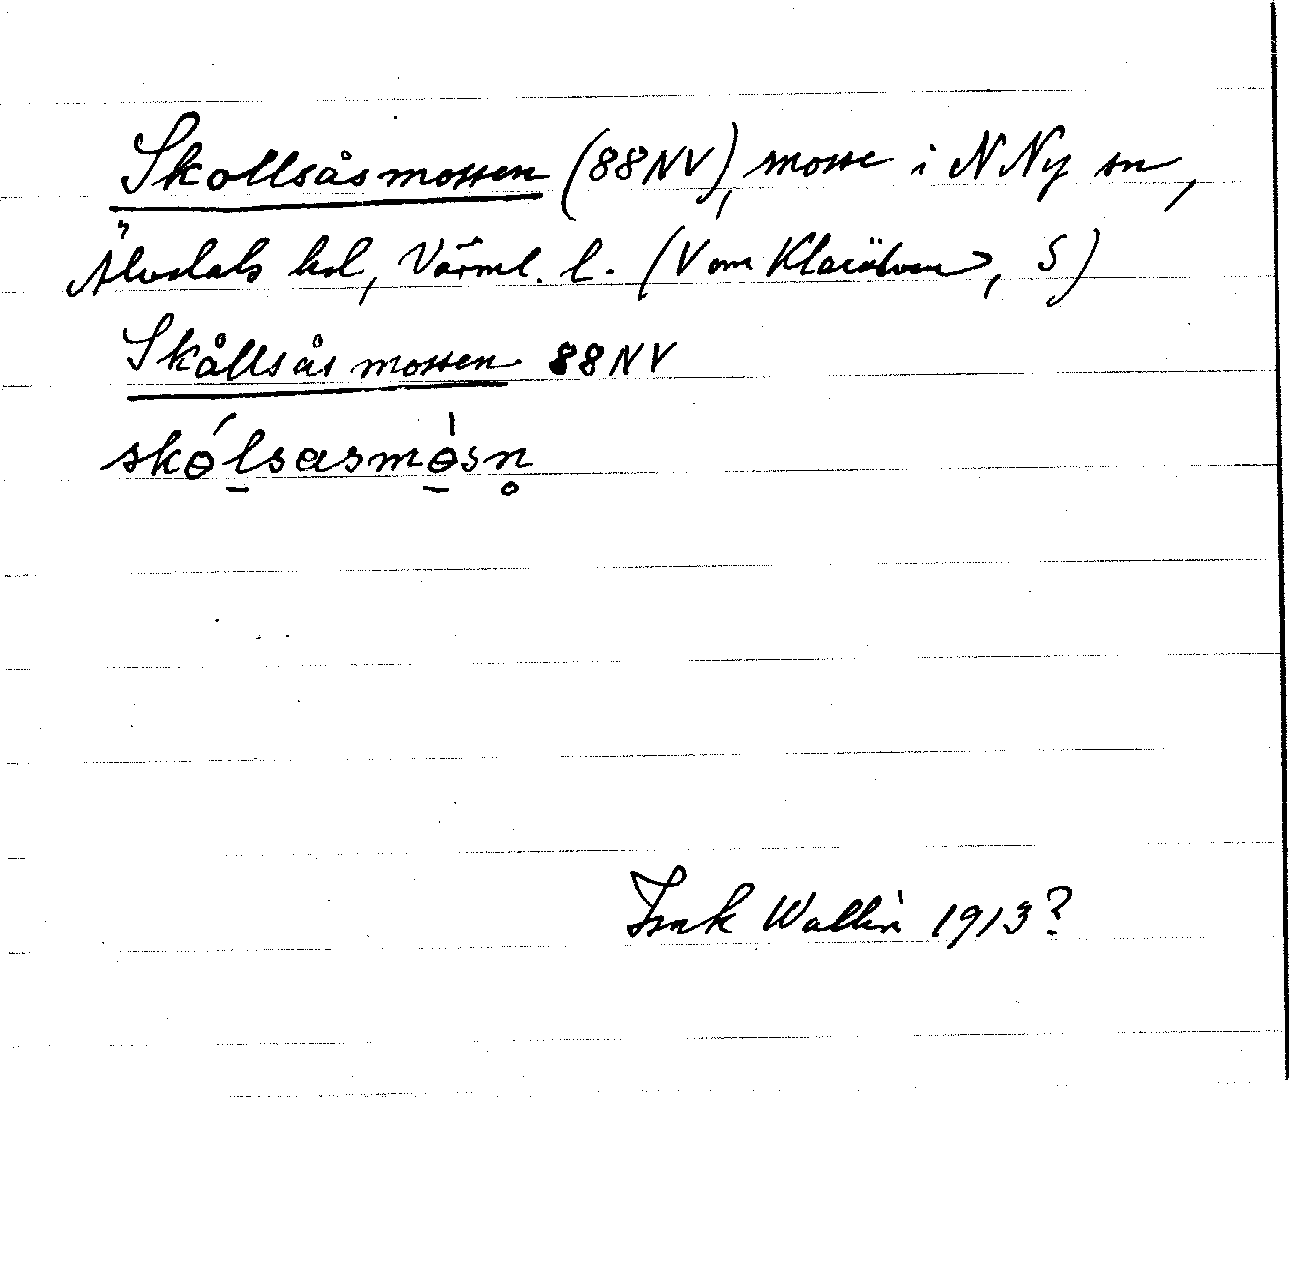 Skollsåsmossen (88NV), mosse i N Ny sn,
Älvdals hd, Värml. l. (V om Klarälven, S)
Skållsåsmossen 88NV
skɵ́lsasmɵ̀sn̥
Isak Wallin 1913?